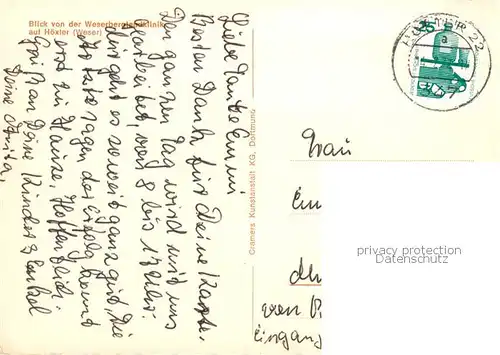 Blick von der Weserberglandklinik
auf Höxter (Weser)
Liebe Tante Emmi
Besten Dank für Deine Karte.
Den ganzen Tag wird mit uns
gearbeitet, von 8 bis 17 Uhr.
Mir geht es soweit ganz gut. Die
Ärzte sagen der Erfolg kommt
erst zu Hause. Hoffentlich.
Gruß an Deine Kinder & Enkel
Deine Anita,
Cramers Kunstanstalt KG, Dortmund
22
a
25
Frau
Em
von
Eingang
privacy protection
Datenschutz